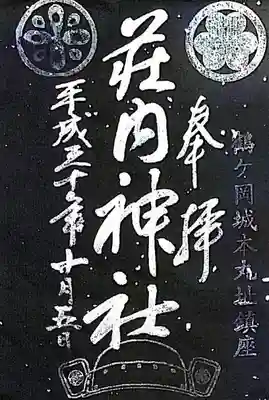 鶴ヶ岡城本丸址鎮座
奉拝
荘内神社
平成三十年十月五日